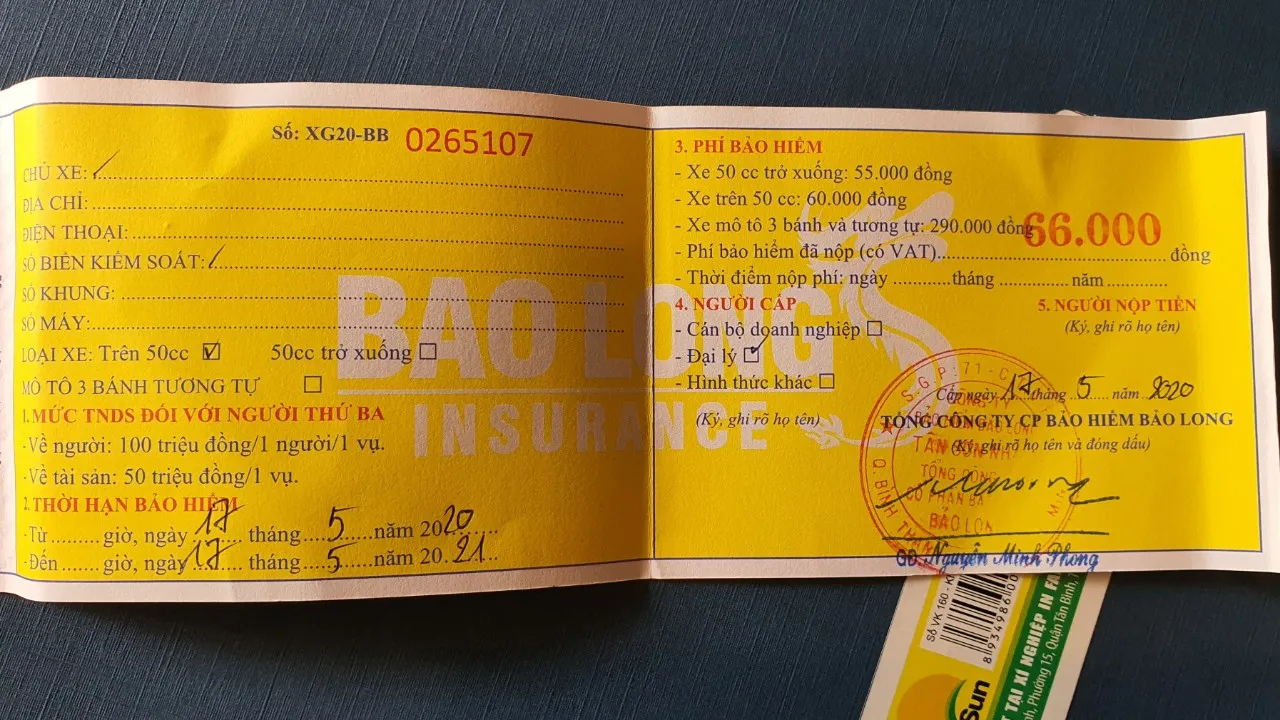 Số: XG20-BB 0265107
CHỦ XE:
ĐỊA CHỈ:
ĐIỆN THOẠI:
SỐ BIỂN KIỂM SOÁT:
SỐ KHUNG:
SỐ MÁY:
LOẠI XE: Trên 50cc ☑ 50cc trở xuống ☐
MÔ TÔ 3 BÁNH TƯƠNG TỰ ☐
1. MỨC TNDS ĐỐI VỚI NGƯỜI THỨ BA
-Về người: 100 triệu đồng/1 người/1 vụ.
-Về tài sản: 50 triệu đồng/1 vụ.
2. THỜI HẠN BẢO HIỂM
-Từ......... giờ, ngày 17 tháng 5 năm 2020
-Đến ....... giờ, ngày 17 tháng 5 năm 20.21
BAO LONG
INSURANCE
3. PHÍ BẢO HIỂM
- Xe 50 cc trở xuống: 55.000 đồng
- Xe trên 50 cc: 60.000 đồng
- Xe mô tô 3 bánh và tương tự: 290.000 đồng
66.000
- Phí bảo hiểm đã nộp (có VAT)...........đồng
- Thời điểm nộp phí: ngày ............tháng ............ năm .............
4. NGƯỜI CẤP
- Cán bộ doanh nghiệp ☐
- Đại lý ☑
- Hình thức khác ☐
(Ký, ghi rõ họ tên)
5. NGƯỜI NỘP TIỀN
(Ký, ghi rõ họ tên)
Cấp ngày 17 tháng 5 năm 2020
TỔNG CÔNG TY CP BẢO HIỂM BẢO LONG
(Ký, ghi rõ họ tên và đóng dấu)
GĐ. Nguyễn Minh Phong
Số VK 160
8 934986
Sun
T TẠI XÍ NGHIỆP IN FA
Phường 15, Quận Tân Bình,